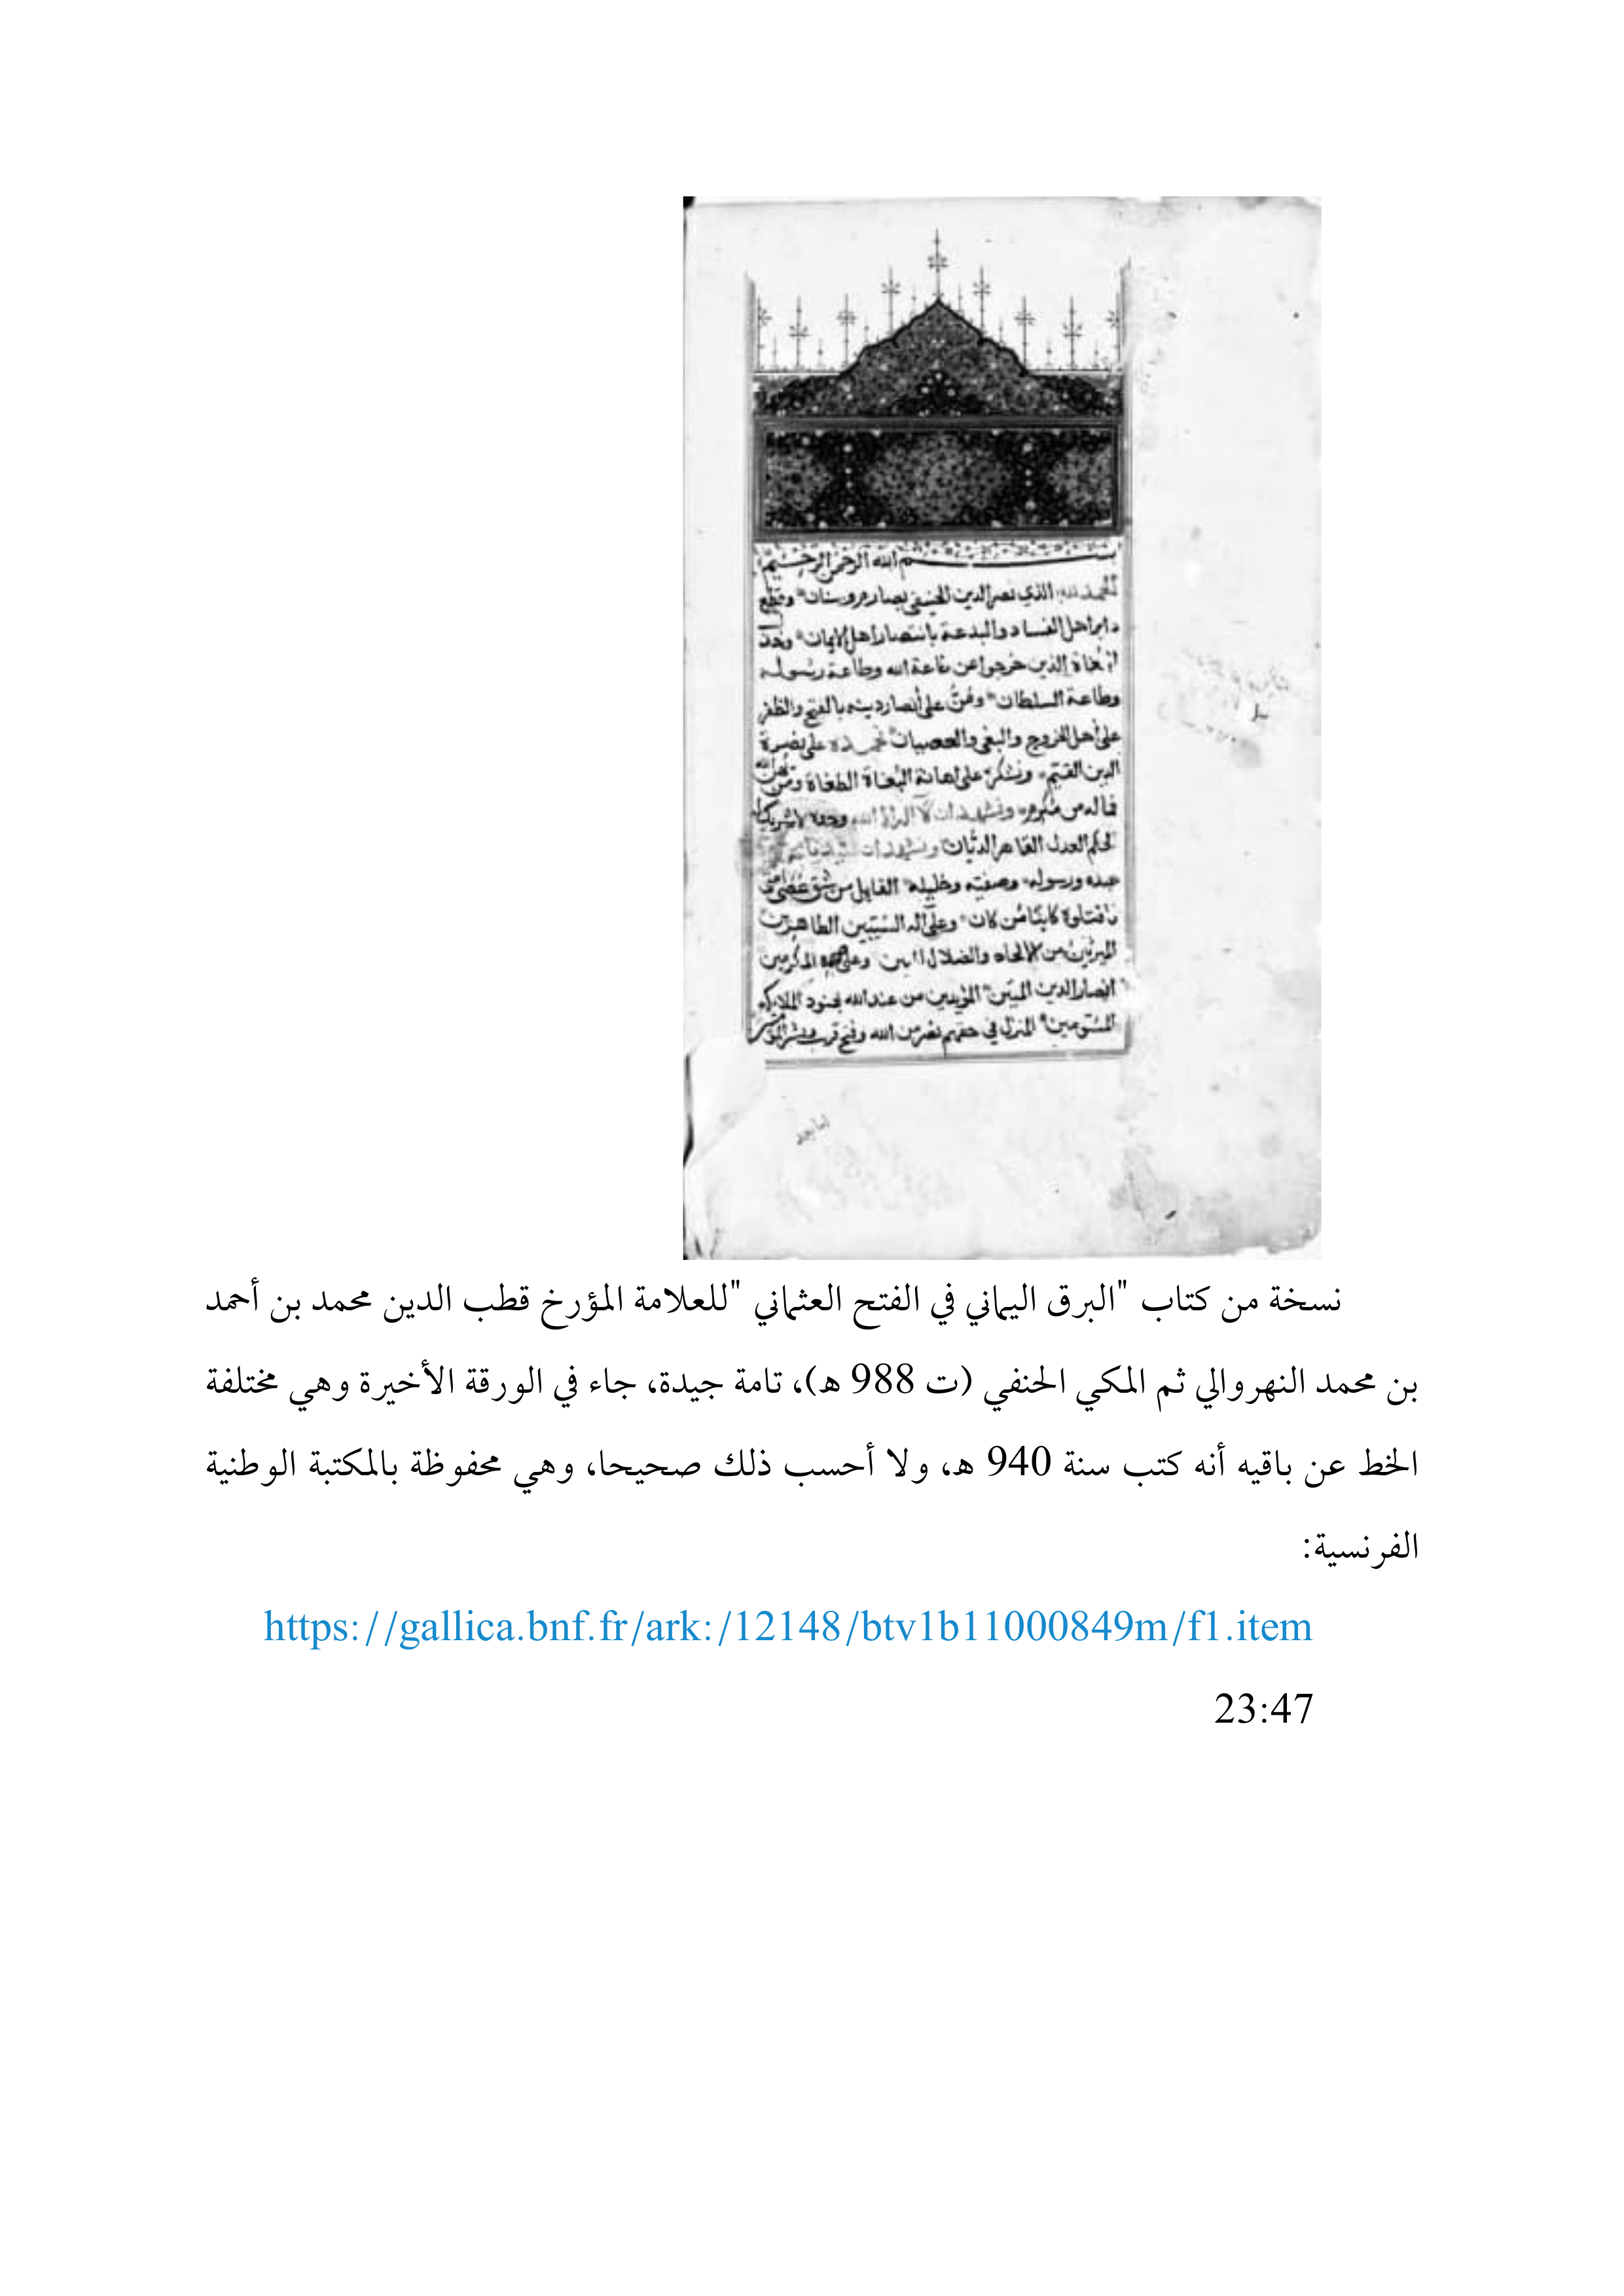 بسم الله الرحمن الرحيم
الحمد لله الذي نصر الدين الحنيفي بصارم وسنان وقطع
دابر اهل الفساد والبدعة بانتصار اهل الايمان
الذين خرجوا عن طاعة الله وطاعة رسوله
وطاعة السلطان ومن على أنصار دينه بالفتح والظفر
على أهل الخروج والبغي والعصيان نحمده على نصرة
الدين القيم ونشكره على اهانة البغاة الطغاة ومن يهن الله
فماله من مكرم ونشهد ان لا اله الا الله وحده لا شريك له
الحكم العدل القاهر الديان ونشهد ان سيدنا
عبده ورسوله وصفيه وخليله القايل من شق عصى
فاقتلوه كاينا من كان وعلى آله الطاهرين
المبرئين من الالحاد والضلال وعلى المكرمين
انصار الدين المتين المؤيدين من عند الله بجنود الملايكه
المسومين المنزل في حقهم نصر من الله وفتح قريب وبشر
اما بعد
نسخة من كتاب "البرق اليماني في الفتح العثماني "للعلامة المؤرخ قطب الدين محمد بن أحمد
بن محمد النهروالي ثم المكي الحنفي (ت 988 ه)، تامة جيدة، جاء في الورقة الأخيرة وهي مختلفة
الخط عن باقيه أنه كتب سنة 940 ه، ولا أحسب ذلك صحيحا، وهي محفوظة بالمكتبة الوطنية
الفرنسية:
https://gallica.bnf.fr/ark:/12148/btv1b11000849m/f1.item
23:47